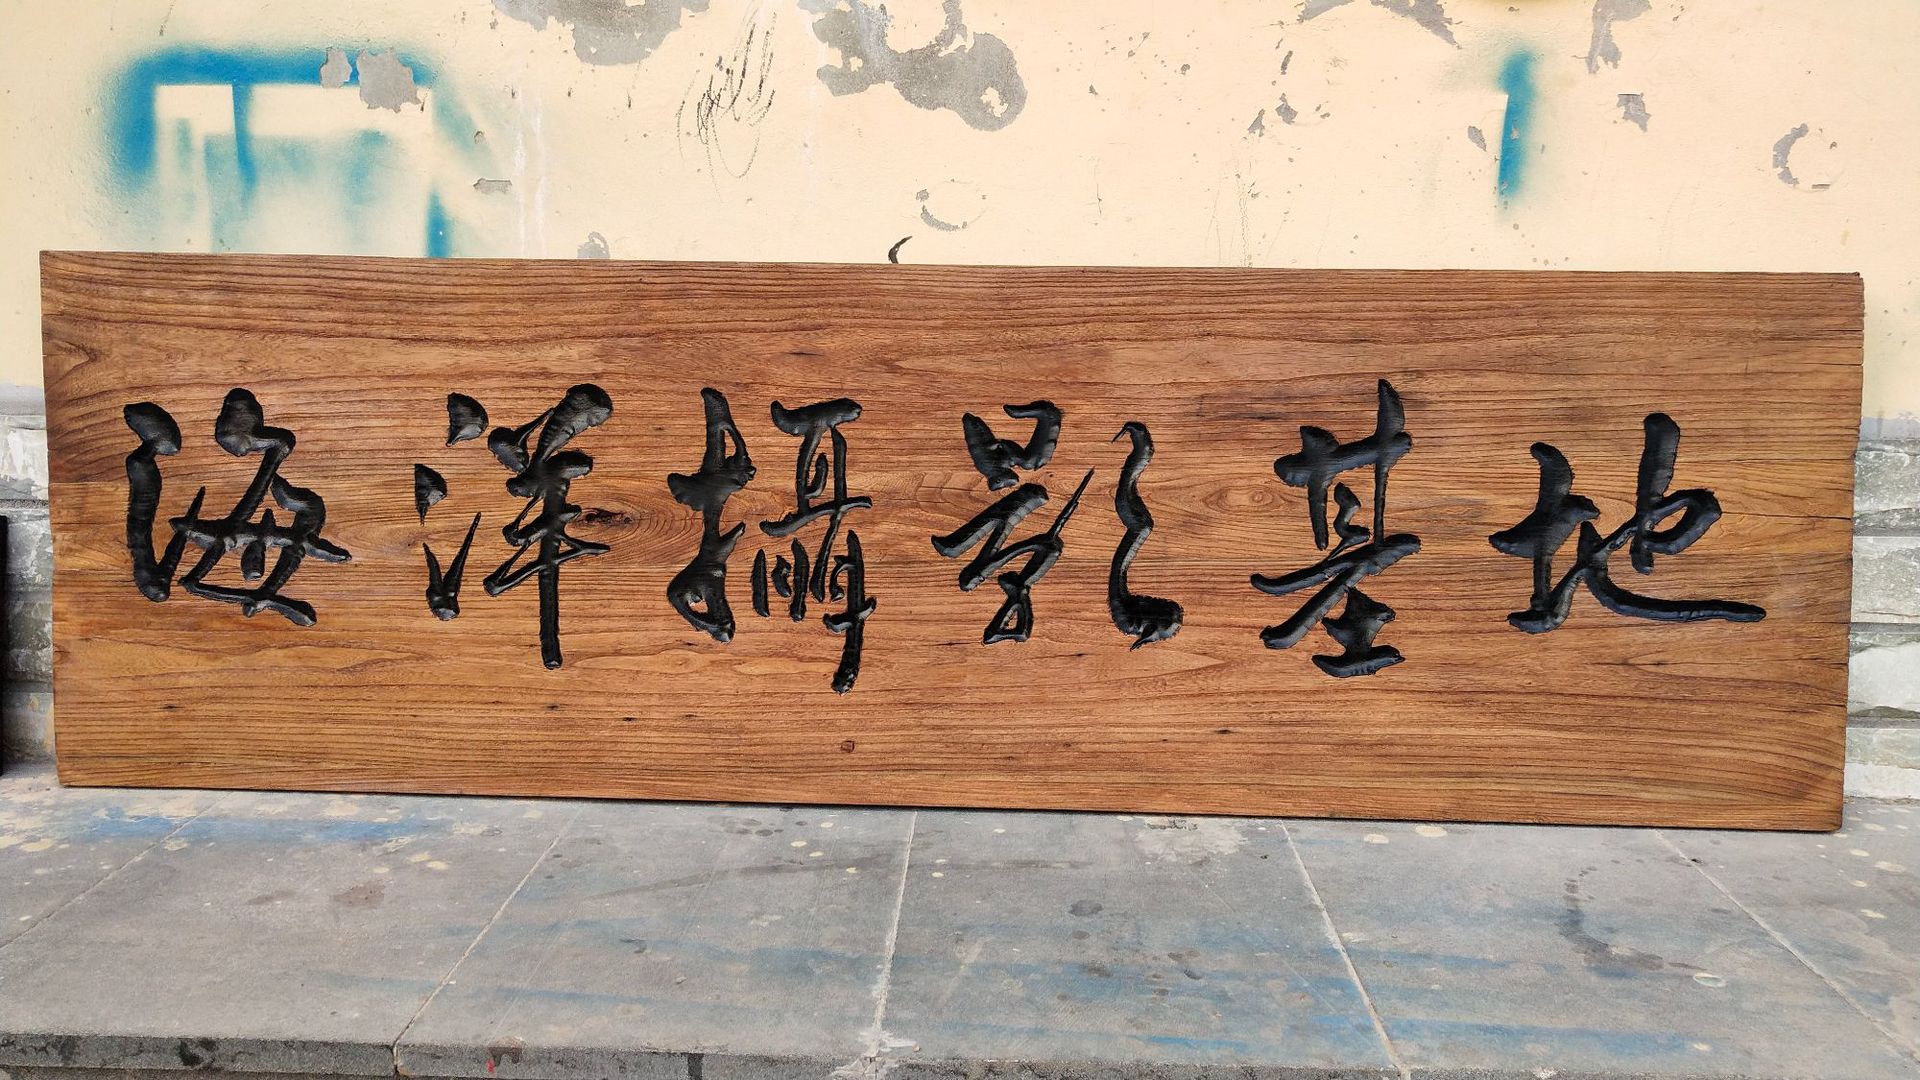 海洋攝影基地